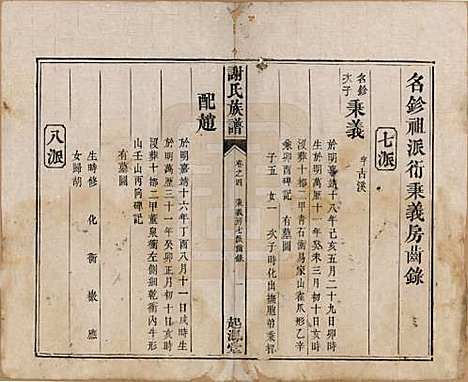 名鉁祖派衍秉義房齒錄
七派
名鉁次子
秉義
字古溪
於明嘉靖十八年己亥五月二十九日卯時
於明萬歷二十三年乙未三月初十日
沒葬十都二甲青石衝易家山雀爪形乙辛
乘卯酉碑記 有墓圖
子五 女一 次子時化出撫胞弟秉
謝氏族譜
卷之四
秉義房七派齒錄
一
起源堂
配趙
於明嘉靖十六年丁酉八月十一日戌時生
於明萬歷三十一年癸卯正月初十日亥時
沒葬十都二甲藍泉衝左側乾衝內牛形
山壬山丙向碑記
有墓圖
八派
生時修 化 衡 嶽 應
女歸胡